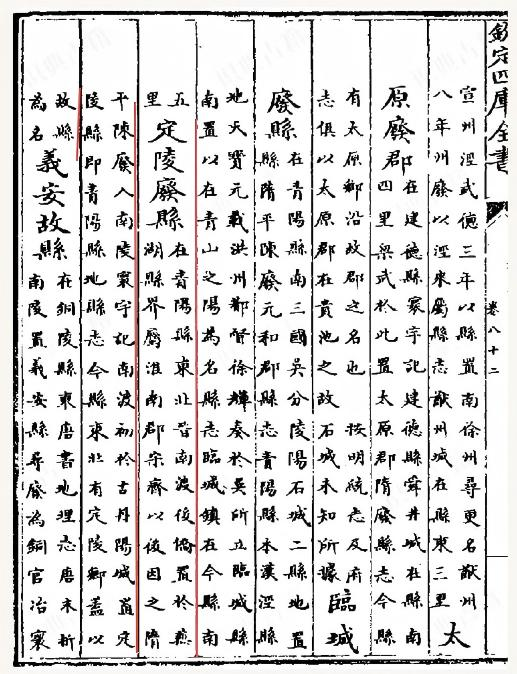 欽定四庫全書
卷八十二
宣州涇武德三年以縣置南徐州尋更名猷州
八年州廢以涇來屬縣志猷州城在縣東三里
太
原廢郡
在建德縣寰宇記建德縣舜井城在縣南
四里梁武於此置太原郡隋廢縣志今縣
有太原鄉沿故郡之名也 按明統志及府
志俱以太原郡在貴池之故石城未知所據
臨城
廢縣
在青陽縣南三國吳分陵陽石城二縣地置
縣隋平陳廢元和郡縣志青陽縣本漢涇縣
地天寶元載洪州都督徐輝奏於吳所立臨城縣
南置以在青山之陽為名縣志臨城鎮在今縣南
五
里
定陵廢縣
在青陽縣東北晉南渡後僑置於蕪
湖縣界屬淮南郡宋齊以後因之隋
平陳廢入南陵寰宇記南渡初於古丹陽城置定
陵縣即青陽縣地縣志今縣東北有定陵鄉蓋以
故縣
為名
義安故縣
在銅陵縣東唐書地理志唐末析
南陵置義安縣尋廢為銅官冶寰